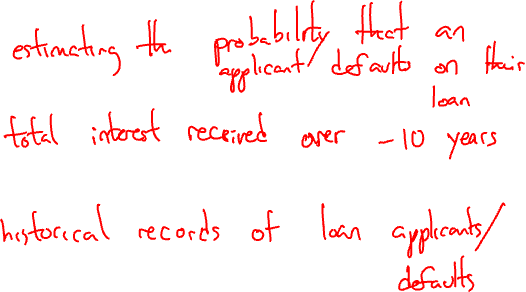 estimating the probability that an
applicant/ defaults on their
loan
total interest received over ~10 years
historical records of loan applicants/
defaults